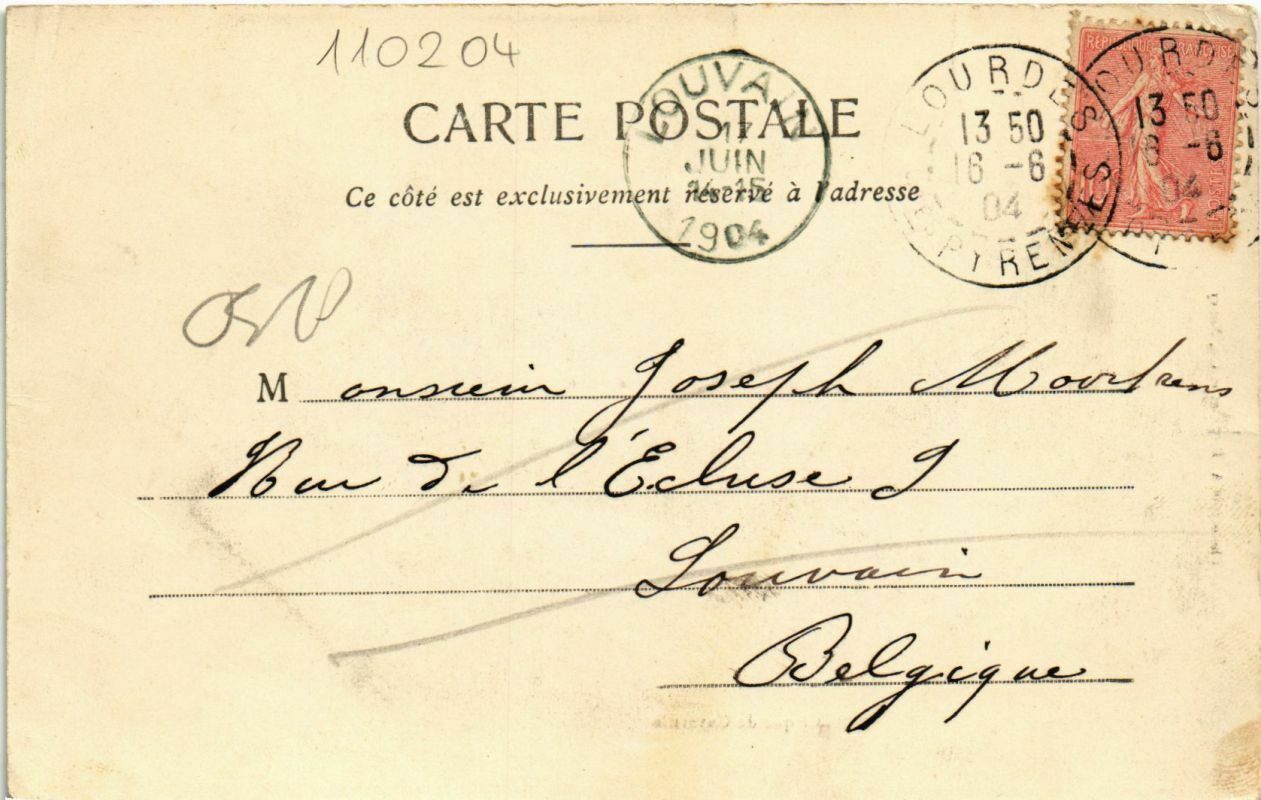 110204
CARTE POSTALE
Ce côté est exclusivement réservé à l'adresse
LOUVAIN
17
JUIN
14-15
1904
LOURDES
13 50
16 -6
04
PYRENEES
REPUBLIQUE FRANÇAISE
10
OURDES
13 50
16 -6
04
Monsieur Joseph
Rue de l'Ecluse 9
Louvain
Belgique